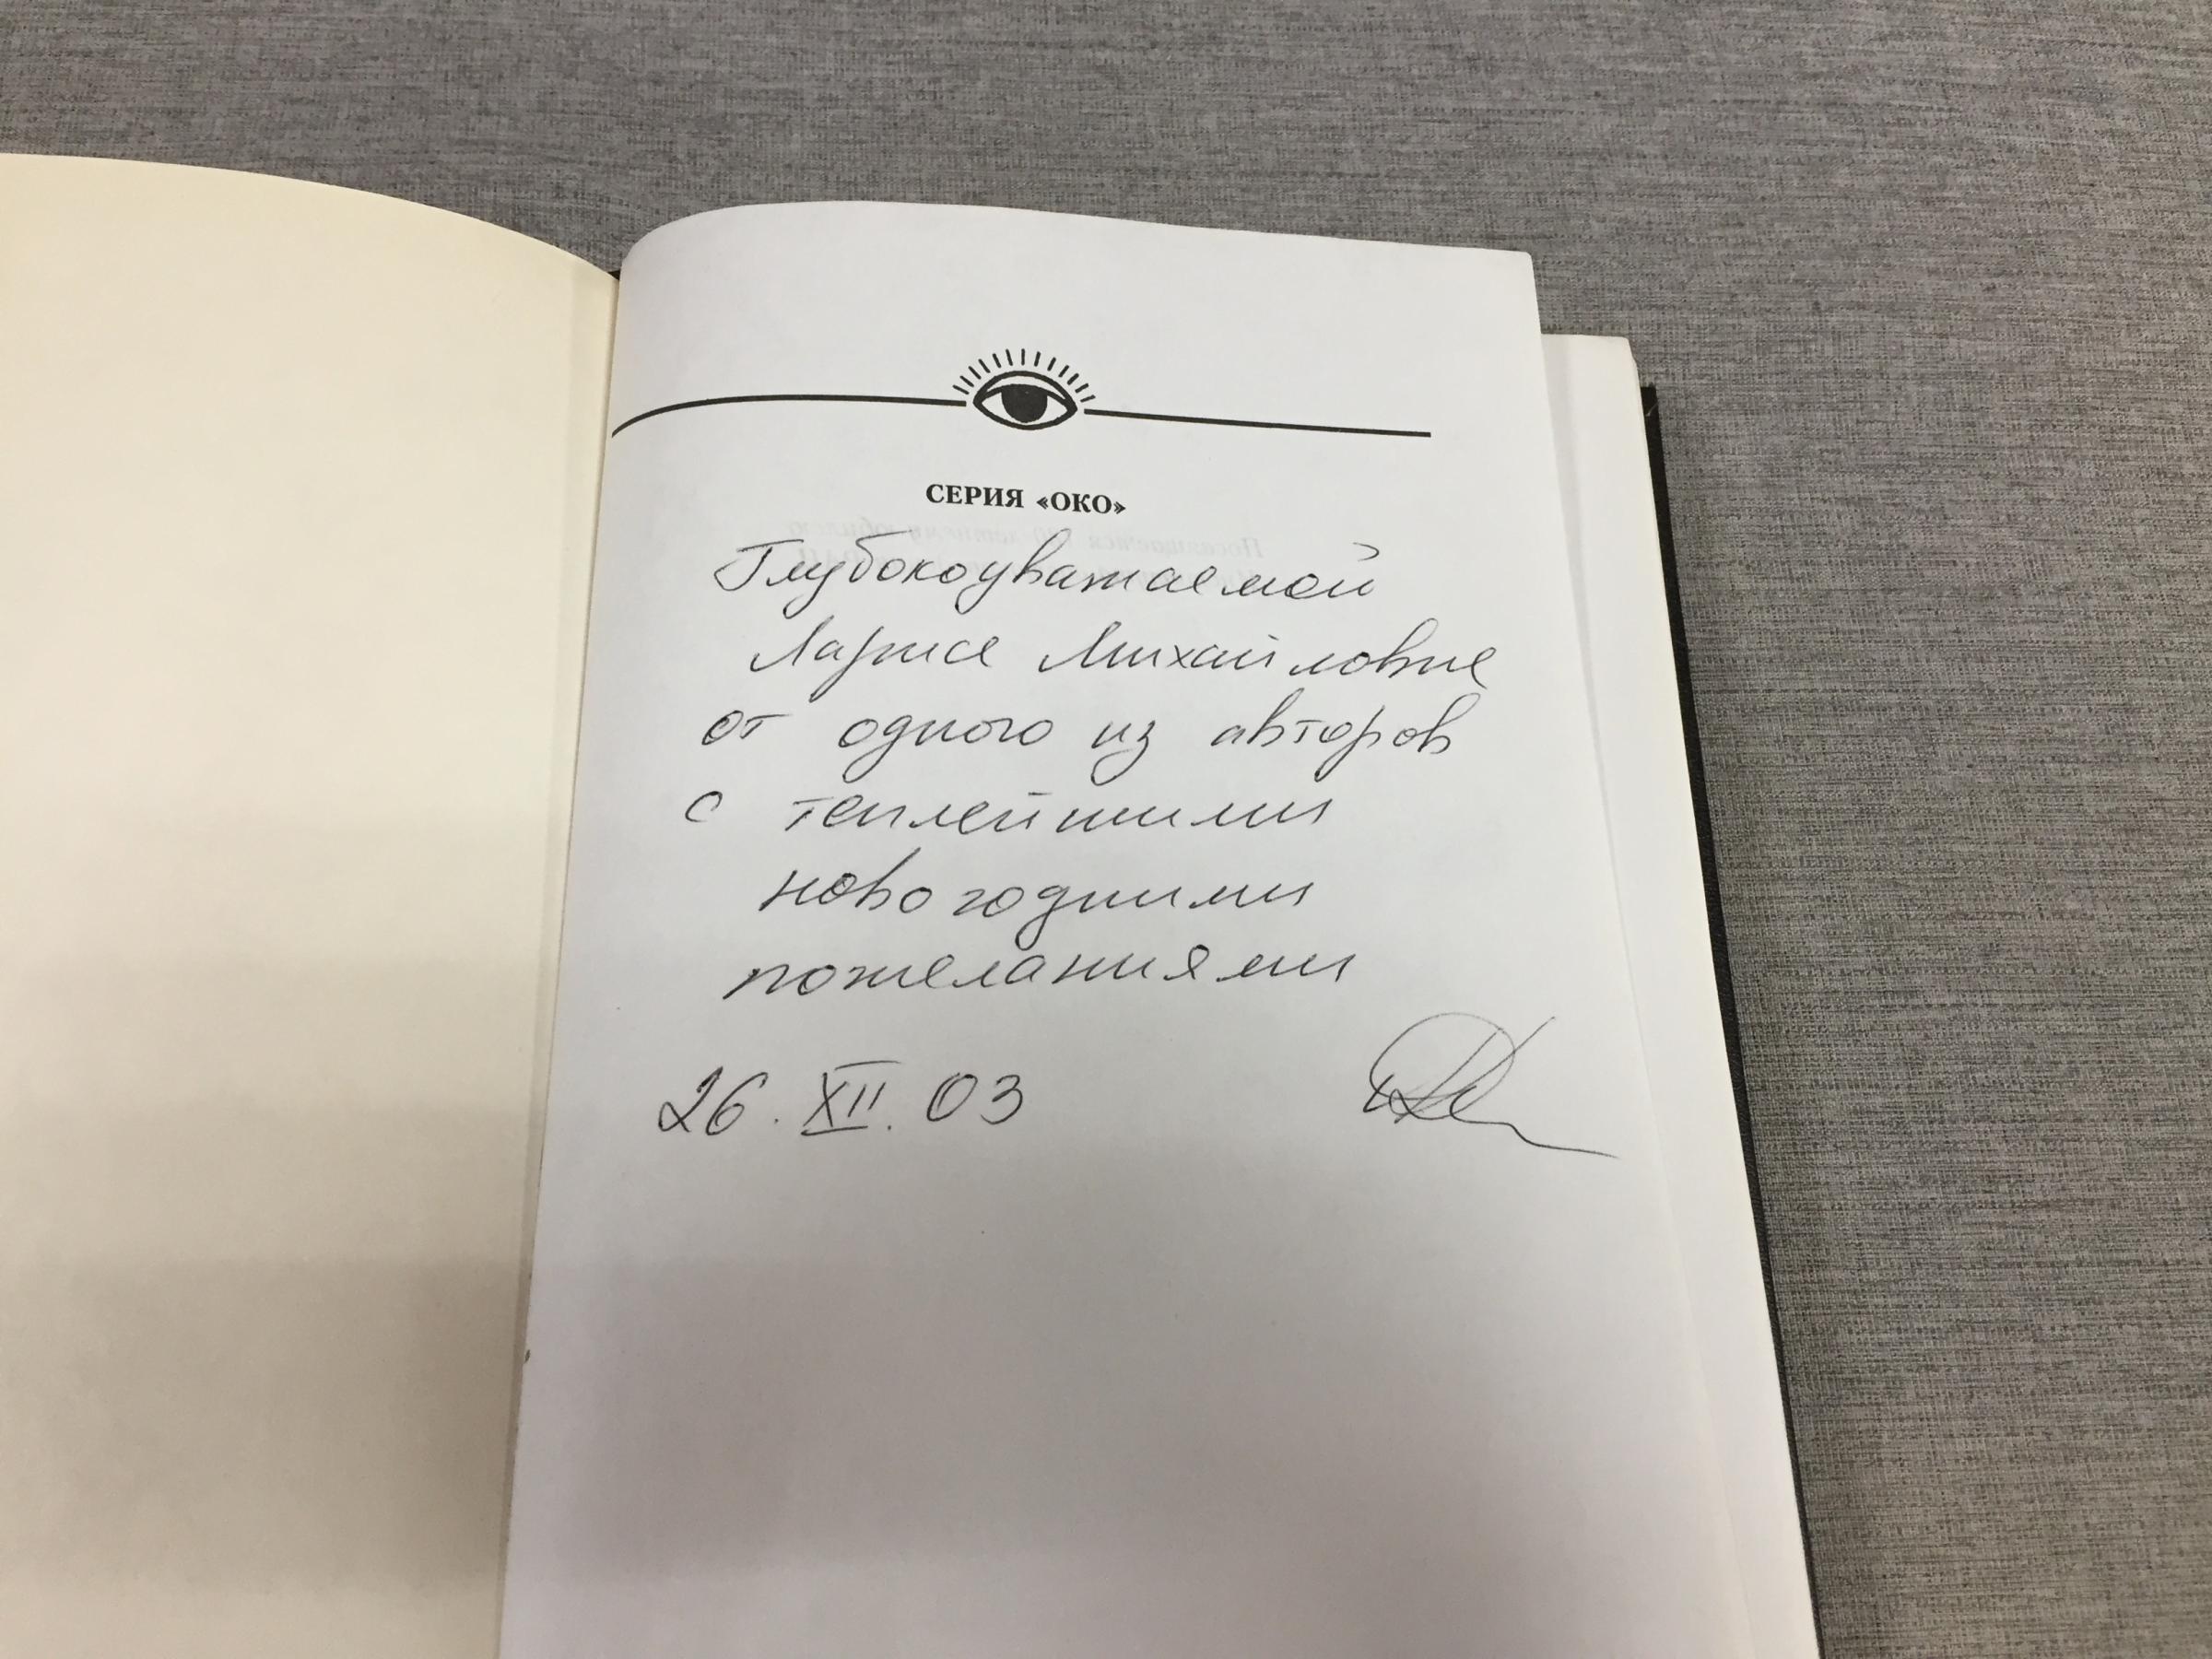 СЕРИЯ «ОКО»
Глубокоуважаемой
Ларисе Михайловне
от одного из авторов
с теплейшими
новогодними
пожеланиями
26. XII. 03